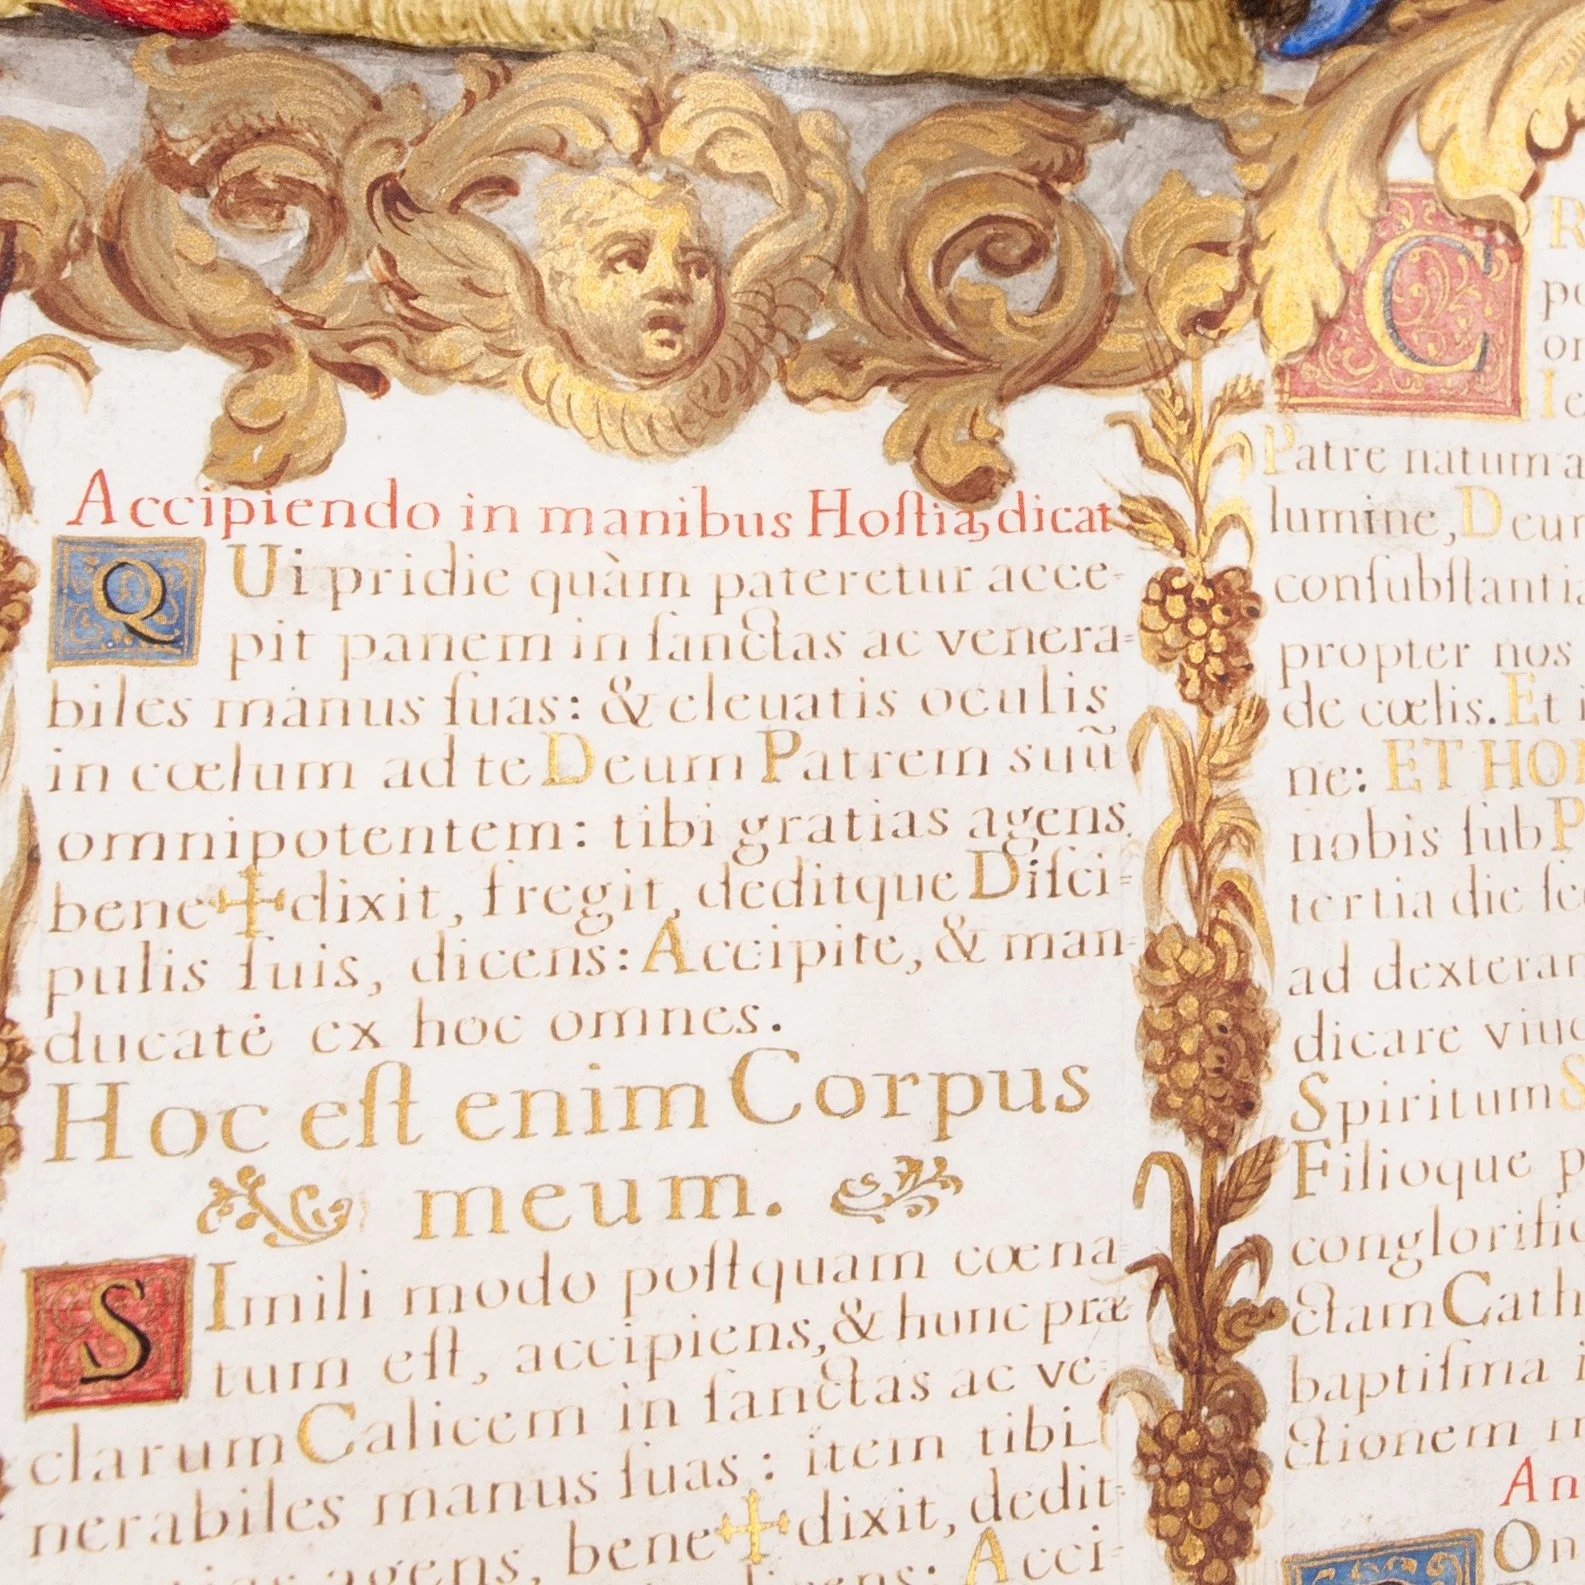 Accipiendo in manibus Hoſtiã, dicat
QUi pridie quàm pateretur acce-
pit panem in ſanctas ac venera-
biles manus ſuas: & eleuatis oculis
in cœlum ad te Deum Patrem suũ
omnipotentem: tibi gratias agens,
bene✠dixit, fregit, deditque Diſci-
pulis ſuis, dicens: Accipite, & man-
ducate ex hoc omnes.
Hoc eſt enim Corpus
meum.
SImili modo poſtquam cœna-
tum eſt, accipiens, & hunc præ-
clarum Calicem in ſanctas ac ve-
nerabiles manus ſuas: item tibi
agens, bene✠dixit, dedit-
Acci-
C
Patre natum a
lumine, Deum
conſubſtantia
propter nos
de cœlis. Et i
ne: ET HO
nobis ſub P
tertia die
ad dexteram
dicare viuo
Spiritum S
Filioque p
conglorific
ctam Cath
baptiſma i
ctionem m
An